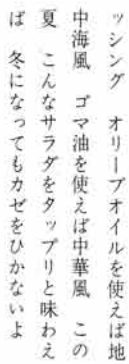 ッシング　オリーブオイルを使えば地
中海風　ゴマ油を使えば中華風　この
夏　こんなサラダをタップリと味わえ
ば　冬になってもカゼをひかないよ